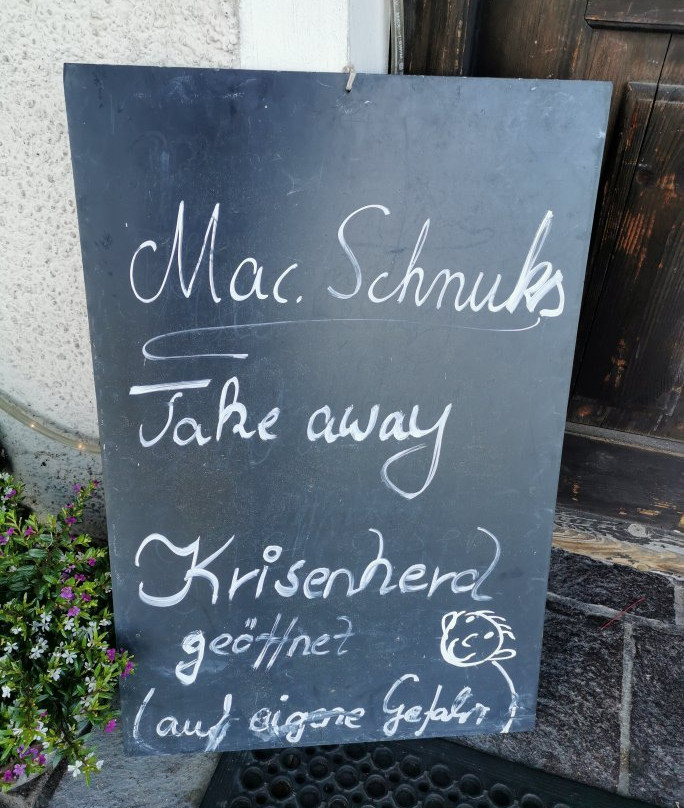 Mac. Schnuks
Take away
Krisenherd
geöffnet
(auf eigene Gefahr)